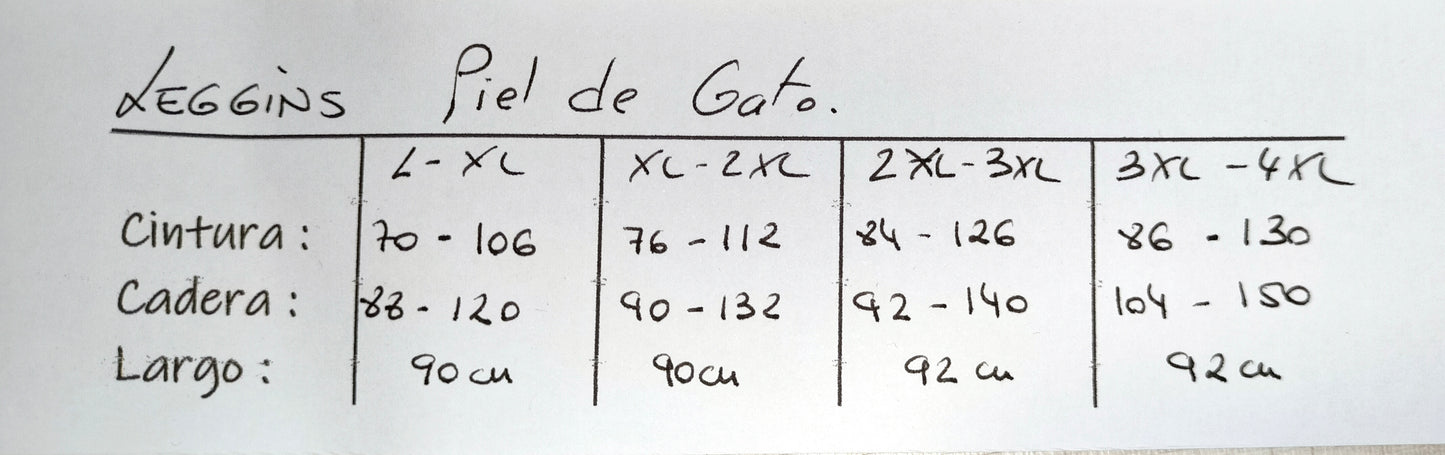 LEGGINS Piel de Gato.
L-XL XL-2XL 2XL-3XL 3XL-4XL
Cintura: 70-106 76-112 84-126 86-130
Cadera: 88-120 90-132 92-140 104-150
Largo: 90cm 90cm 92cm 92cm